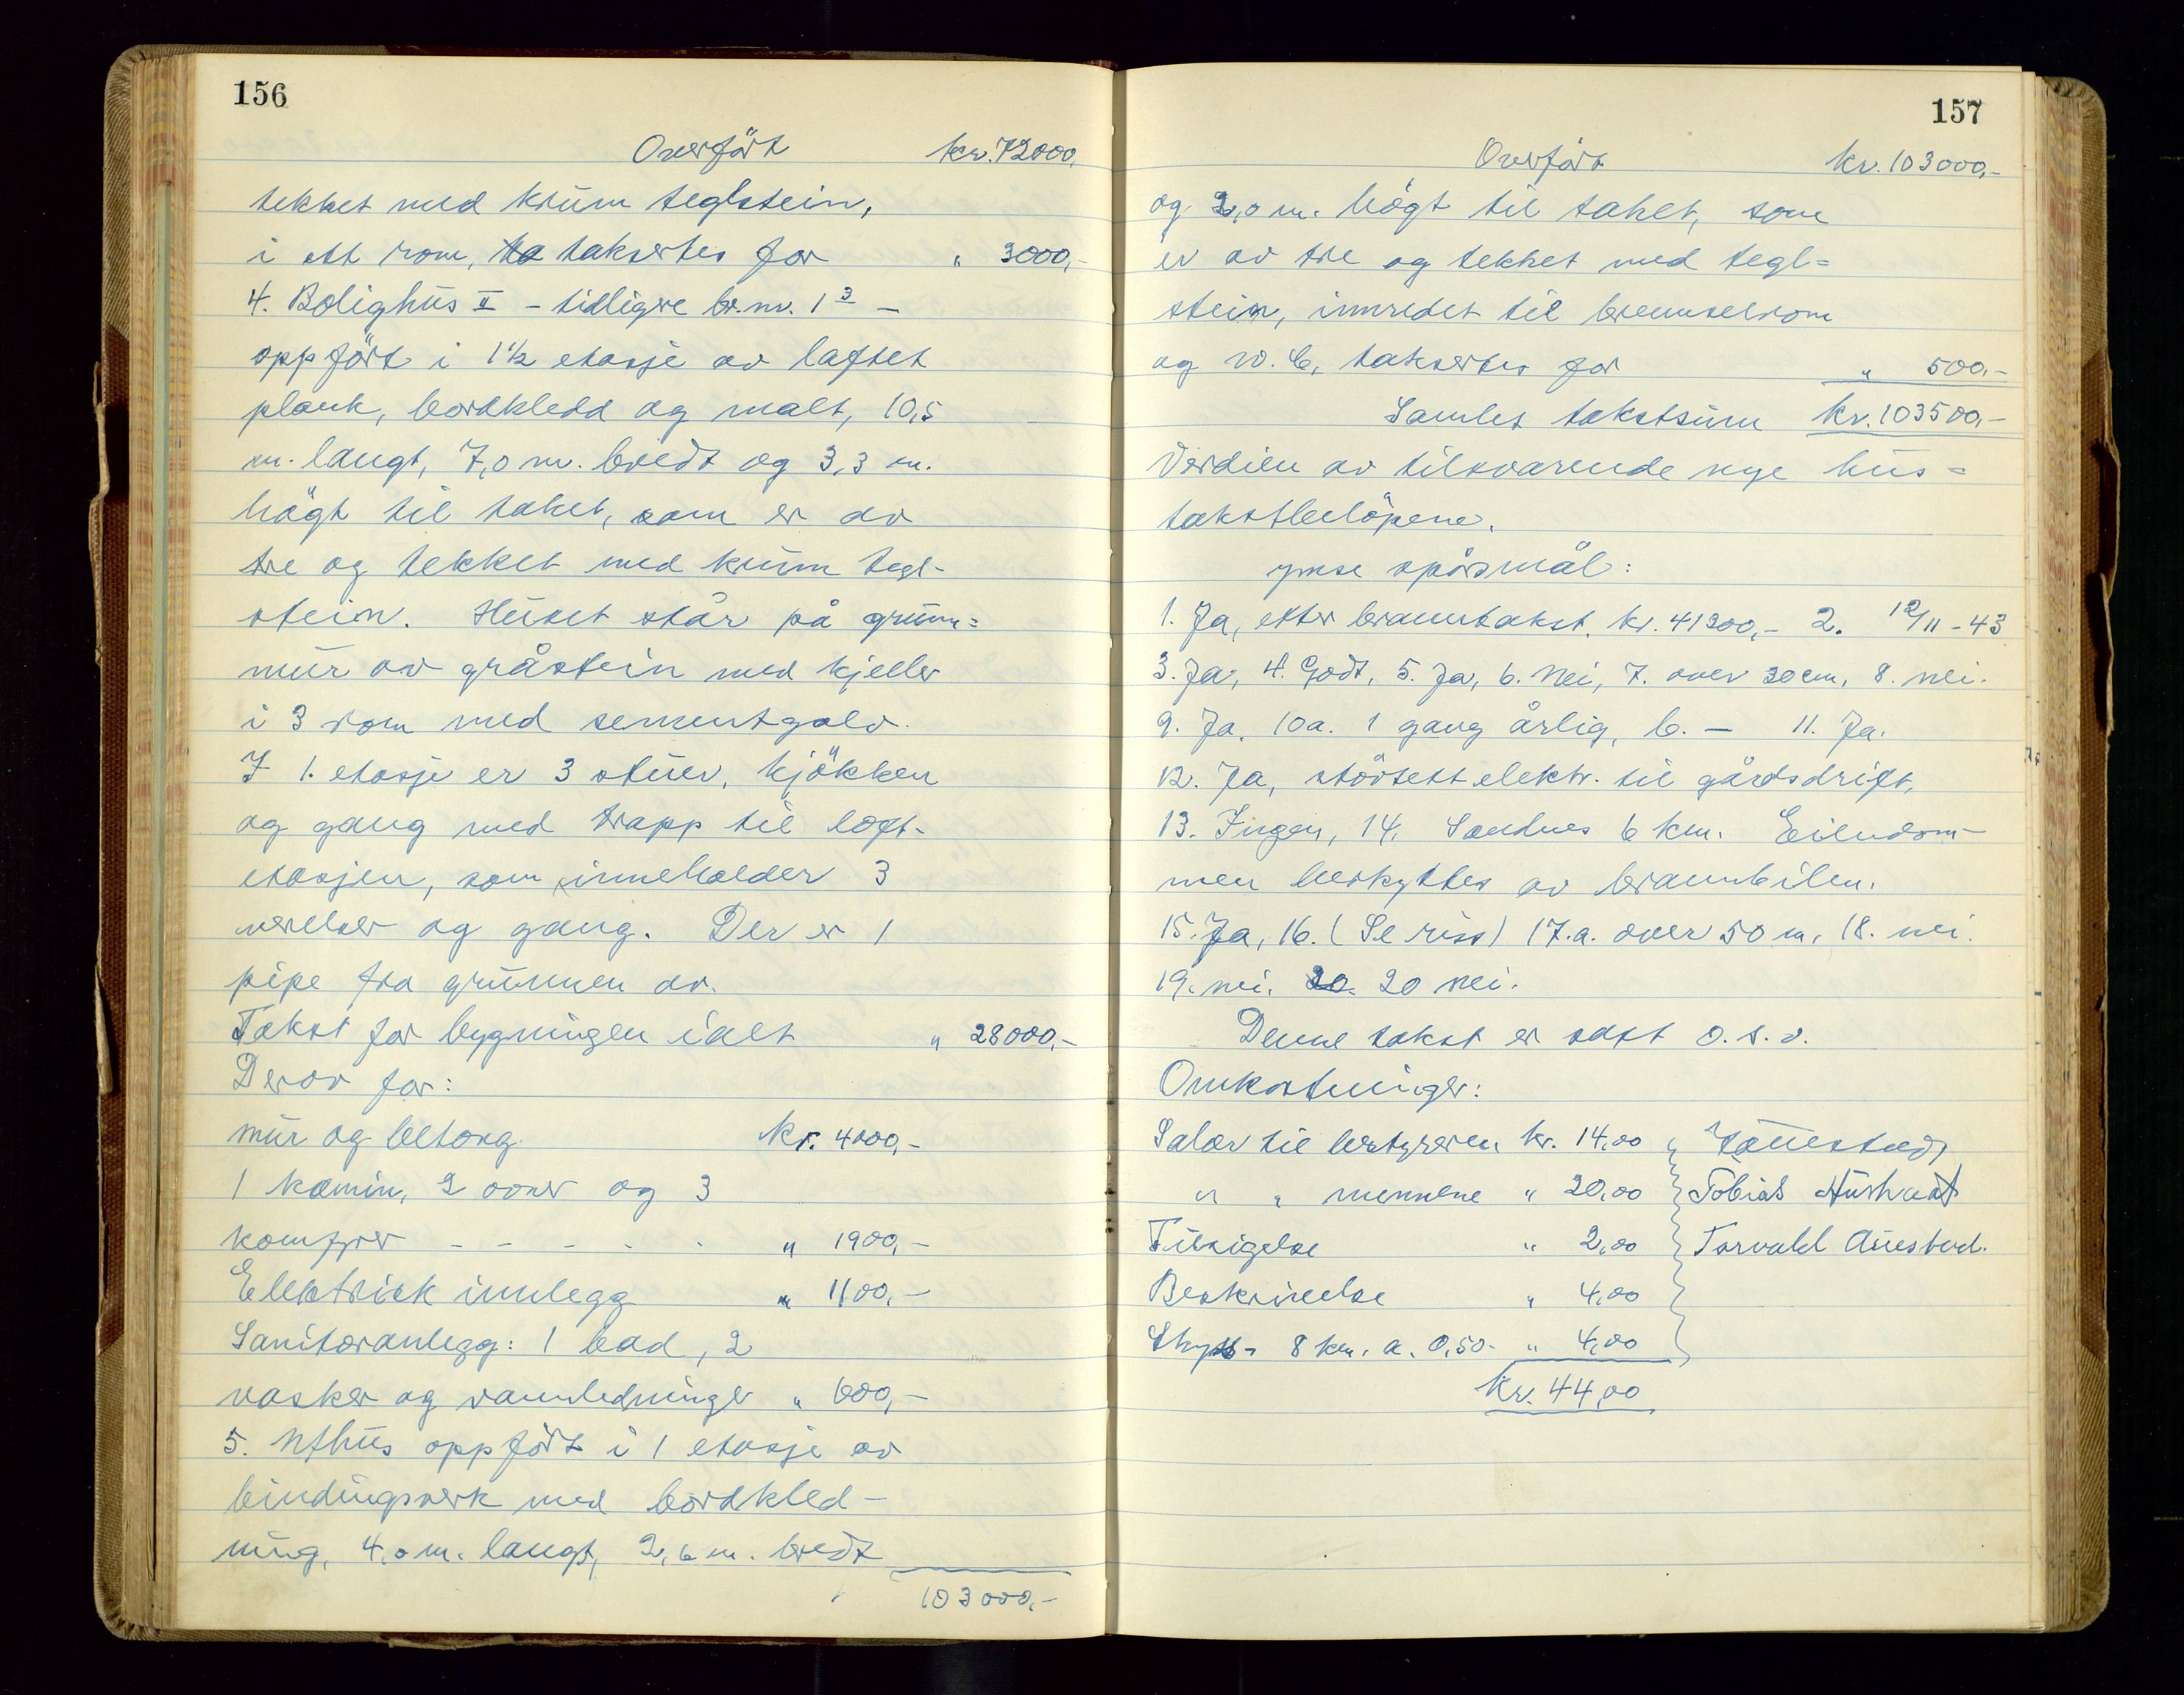 156
Overført kr. 72000,
tekket med krum teglstein,
i ett rom, ta taksertes for " 3000,-
4. Bolighus II - tidligere br.nr. 1 3 -
oppført i 1½ etasje av laftet
plank, bordkledd og malt, 10,5
m. langt, 7,0 m. bredt og 3,3 m.
høgt til taket, som er av
tre og tekket med krum tegl-
stein. Huset står på grunn=
mur av gråstein med kjeller
i 3 rom med sementgolv.
I 1. etasje er 3 stuer, kjøkken
og gang med trapp til loft-
etasjen, som inneholder 3
værelser og gang. Der er 1
pipe fra grunnen av.
Takst for bygningen ialt " 28000,-
Derav for:
mur og betong kr. 4000,-
1 kamin, 2 ovner og 3
komfyrer - - - - - " 1900,-
Elektrisk innlegg " 1100,-
Sanitæranlegg: 1 bad, 2
vasker og vannledninger " 600,-
5. Uthus oppført i 1 etasje av
bindingsverk med bordkled-
ning, 4,0 m. langt, 2,6 m. bredt
103000,-
157
Overført kr. 103000,-
og 2,0 m. høgt til taket, som
er av tre og tekket med tegl=
stein, innredet til brennselrom
og W.C, taksertes for " 500,-
Samlet takstsum kr. 103500,-
Verdien av tilsvarende nye hus =
takstbeløpene.
ymse spørsmål:
1. Ja, etter branntakst. kr. 41300,- 2. 12/11-43
3. Ja, 4. Godt, 5. Ja, 6. Nei, 7. over 30 cm, 8. nei.
9. Ja. 10a. 1 gang årlig, b. - 11. Ja.
12. Ja, størsett elektr. til gårdsdrift,
13. Ingen, 14. Sandnes 6 km. Eiendom-
men beskyttes av brannbilen.
15. Ja, 16. (Se riss) 17.a. over 50 m, 18. nei.
19. nei. 20. 20 nei.
Denne takst er satt o.s.v.
Omkostninger:
Salær til bestyreren kr. 14,00
" " mennene " 20,00 Tobias Husveat
Tilsigelse " 2,00 Torvald Auestad.
Beskrivelse " 4,00
Skyss - 8 km. a. 0,50 - " 4,00
kr. 44,00